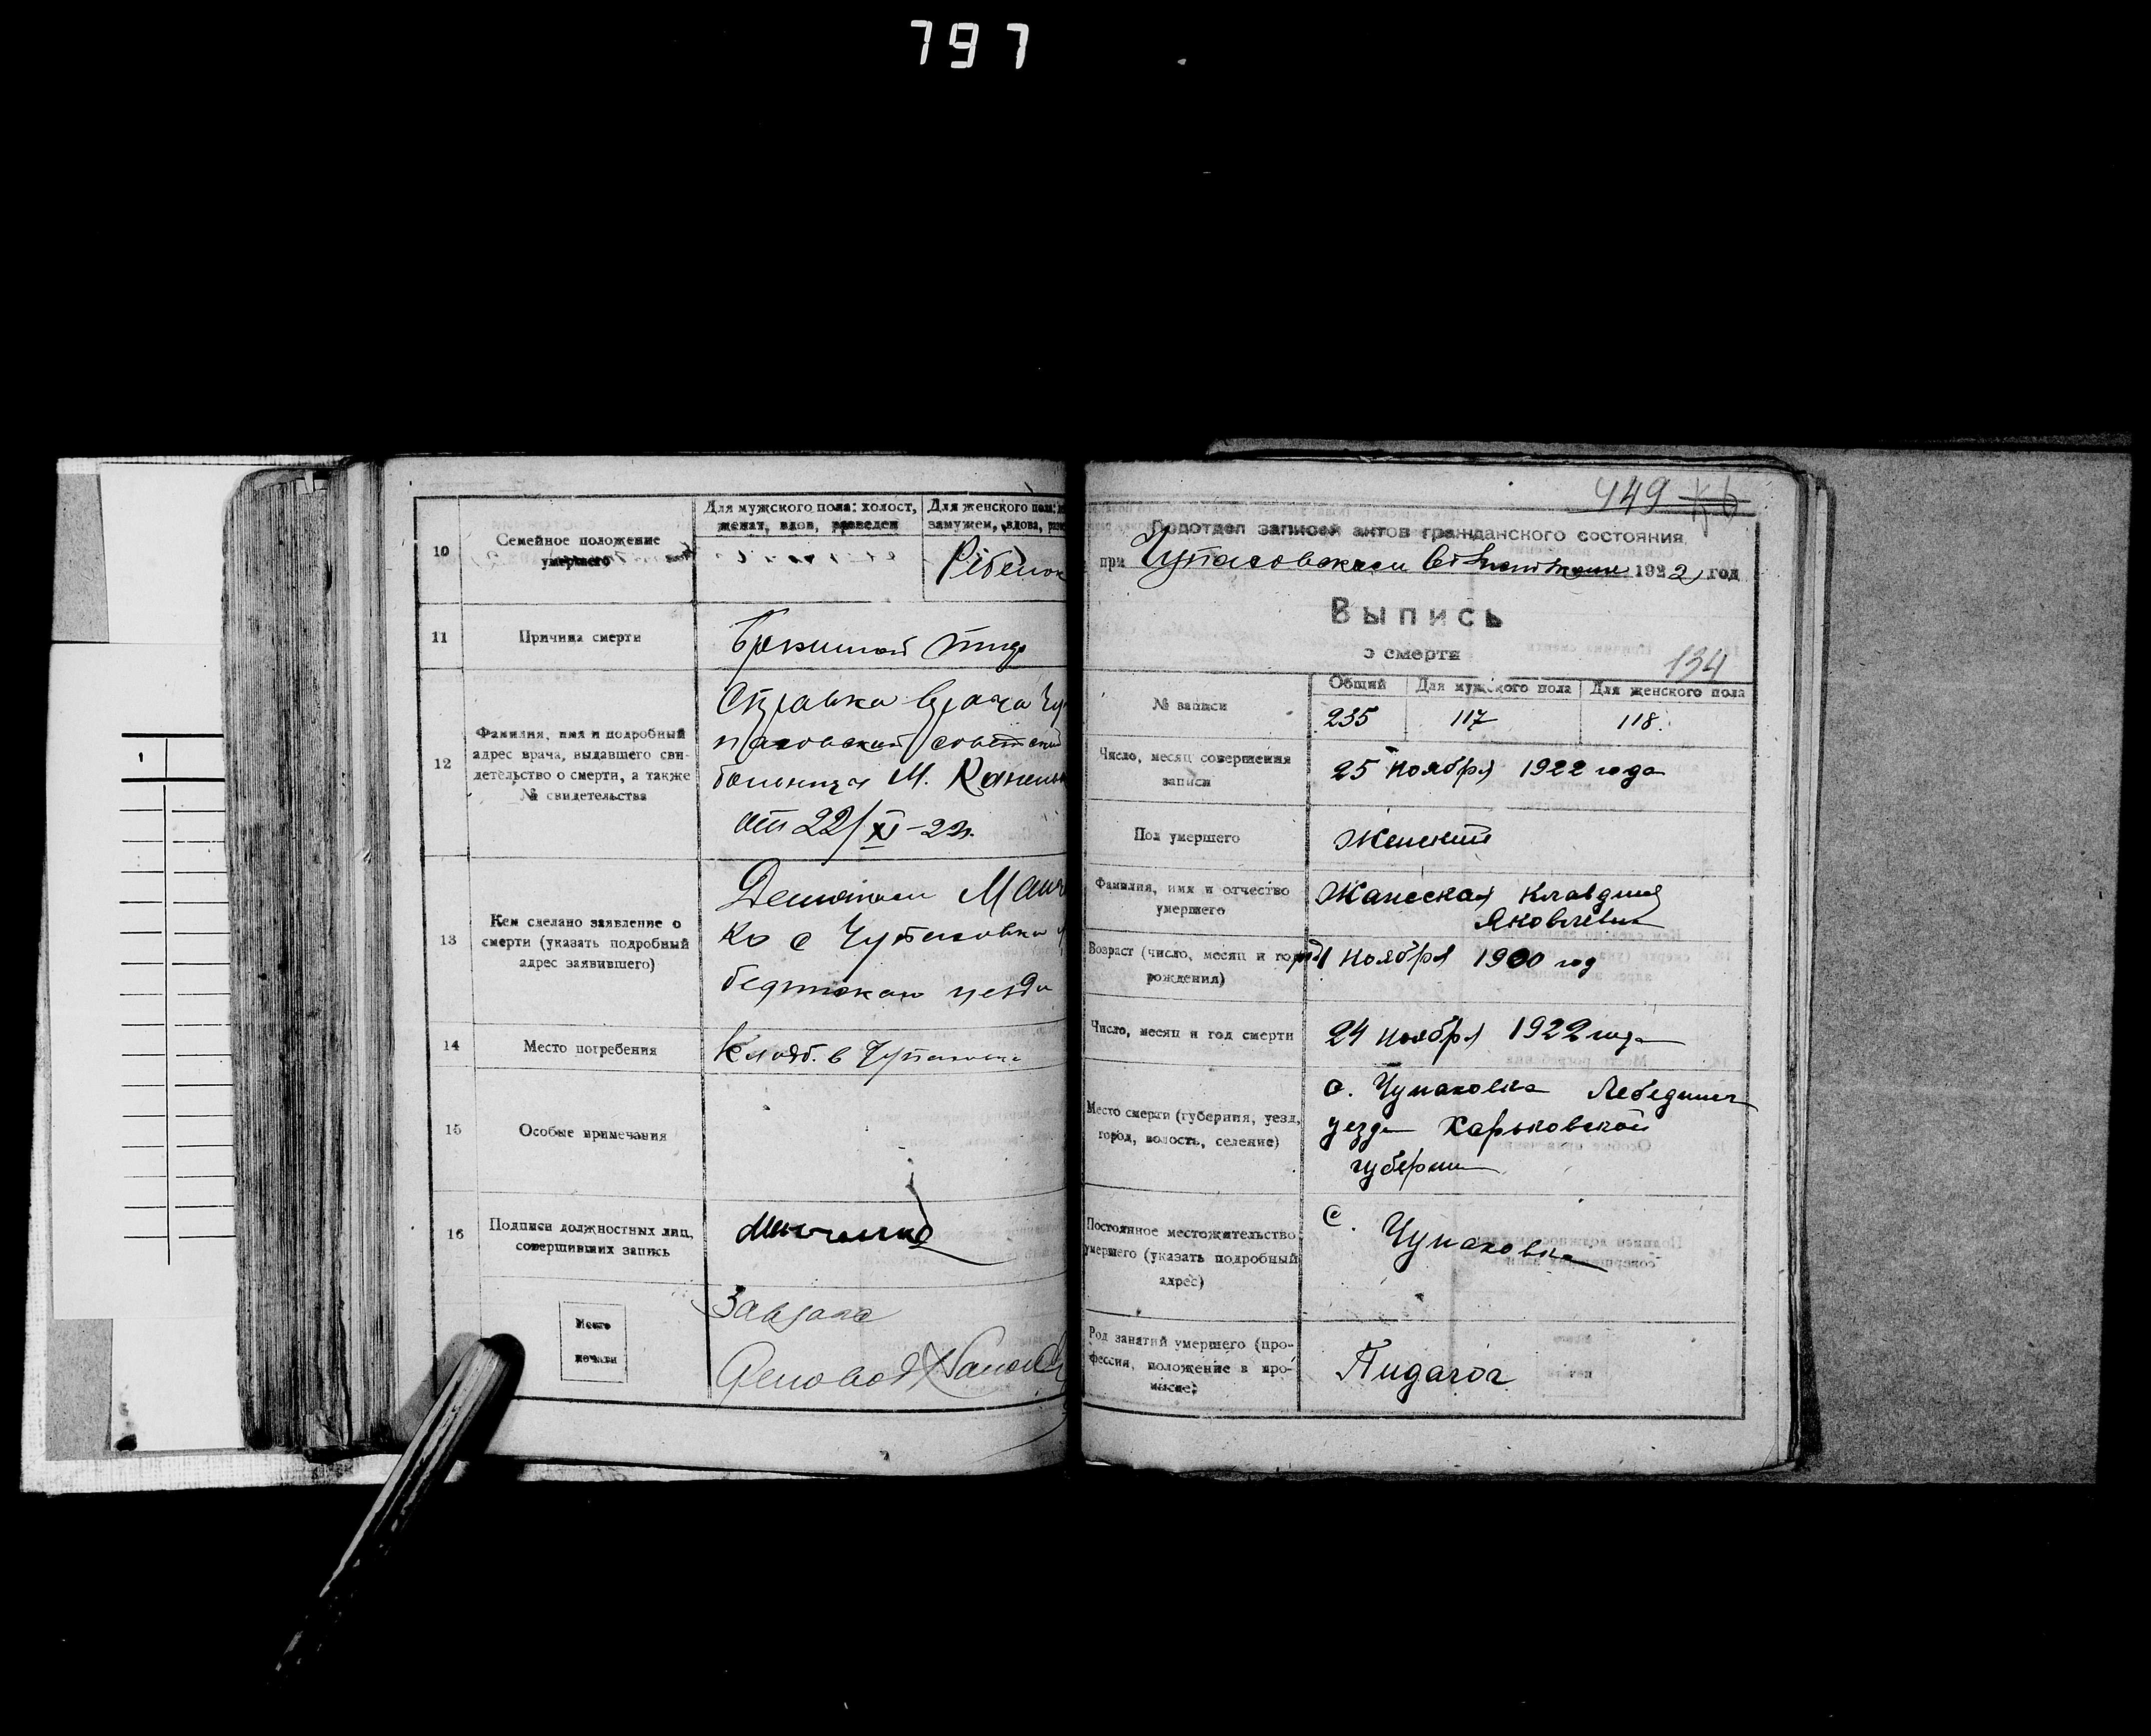 797
10
Семейное положение
умершего
Для мужского пола: холост,
женат, вдов, разведен
Для женского пола:
замужем, вдова,
Ребенок
11
Причина смерти
Брюшной тиф
12
Фамилия, имя и подробный
адрес врача, выдавшего сви-
детельство о смерти, а также
№ свидетельства
Справка врача
советской
больницы М.
от 22/XI-22.
13
Кем сделано заявление о
смерти (указать подробный
адрес заявившего)
ко с
уезда
14
Место погребения
Кладб. в
15
Особые примечания
16
Подписи должностных лиц,
совершивших запись
Место
печати
449
Подотдел записей актов гражданского состояния
при 1922 год
Выпись
о смерти
134
Общий
Для мужского пола
Для женского пола
№ записи
235
117
118
Число, месяц совершения
записи
25 ноября 1922 года
Пол умершего
Женский
Фамилия, имя и отчество
умершего
Клавдия
Яковлевна
Возраст (число, месяц и год
рождения)
1 ноября 1900 год
Число, месяц и год смерти
24 ноября 1922 года
Место смерти (губерния, уезд,
город, волость, селение)
с. Чупаховка Лебединск
уезда Харьковской
губернии
Постоянное местожительство
умершего (указать подробный
адрес)
с. Чупаховка
Род занятий умершего (про-
фессия, положение в про-
мысле)
Пидагог